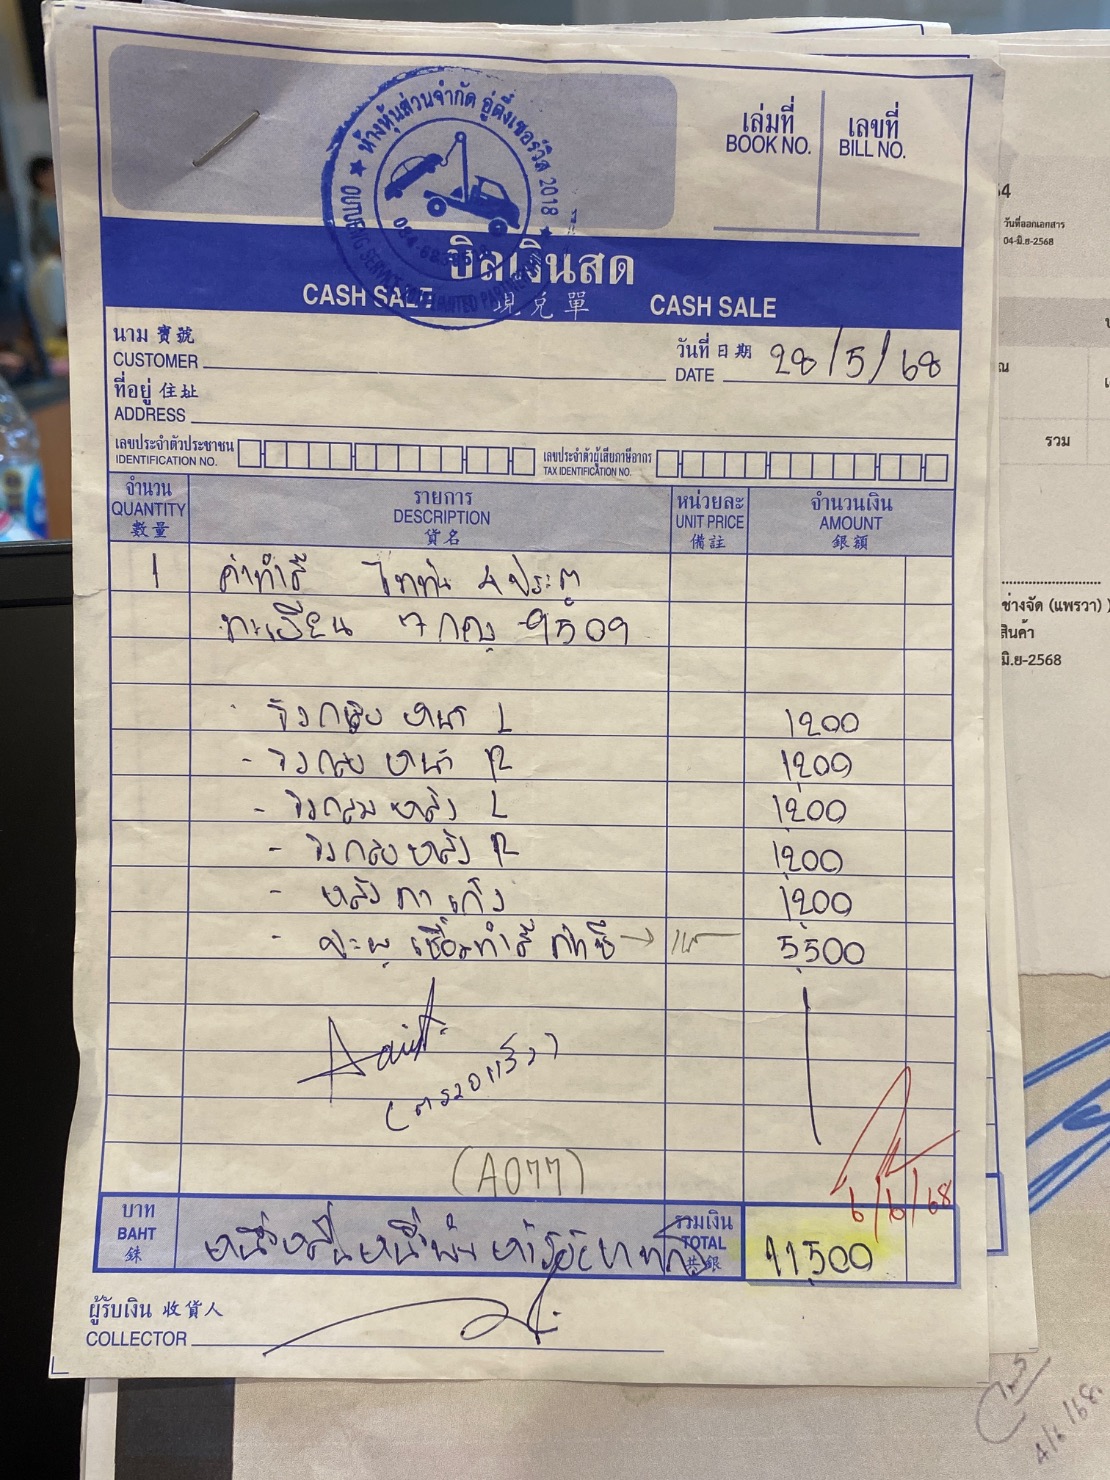 ห้างหุ้นส่วนจำกัด อู่ตึ๋งเซอร์วิส 2018
เล่มที่ เลขที่
BOOK NO. BILL NO.
บิลเงินสด
CASH SALE 現兌單 CASH SALE
นาม 寶號
CUSTOMER
วันที่ 日期
DATE 28/5/68
ที่อยู่ 住址
ADDRESS
เลขประจำตัวประชาชน
IDENTIFICATION NO.
เลขประจำตัวผู้เสียภาษีอากร
TAX IDENTIFICATION NO.
จำนวน รายการ หน่วยละ จำนวนเงิน
QUANTITY DESCRIPTION UNIT PRICE AMOUNT
數量 貨名 備註 銀額
1 ค่าทำสี ไททัน 4 ประตู
ทะเบียน 7 กญ-9509
หน้า L 1200
- หน้า R 1200
- หลัง L 1200
- หลัง R 1200
- หลังคาเก๋ง 1200
- ทำสี 5,500
(ตรวจแล้ว)
(A077)
6/6/68
บาท
BAHT
銖
หนึ่งหมื่นหนึ่งพันห้าร้อยบาทถ้วน
รวมเงิน
TOTAL
共銀
11,500
ผู้รับเงิน 收貨人
COLLECTOR
วันที่ออกเอกสาร
04-มิ.ย-2568
รวม
ช่างจัด (แพรวา)
สินค้า
มิ.ย-2568
4/6/68